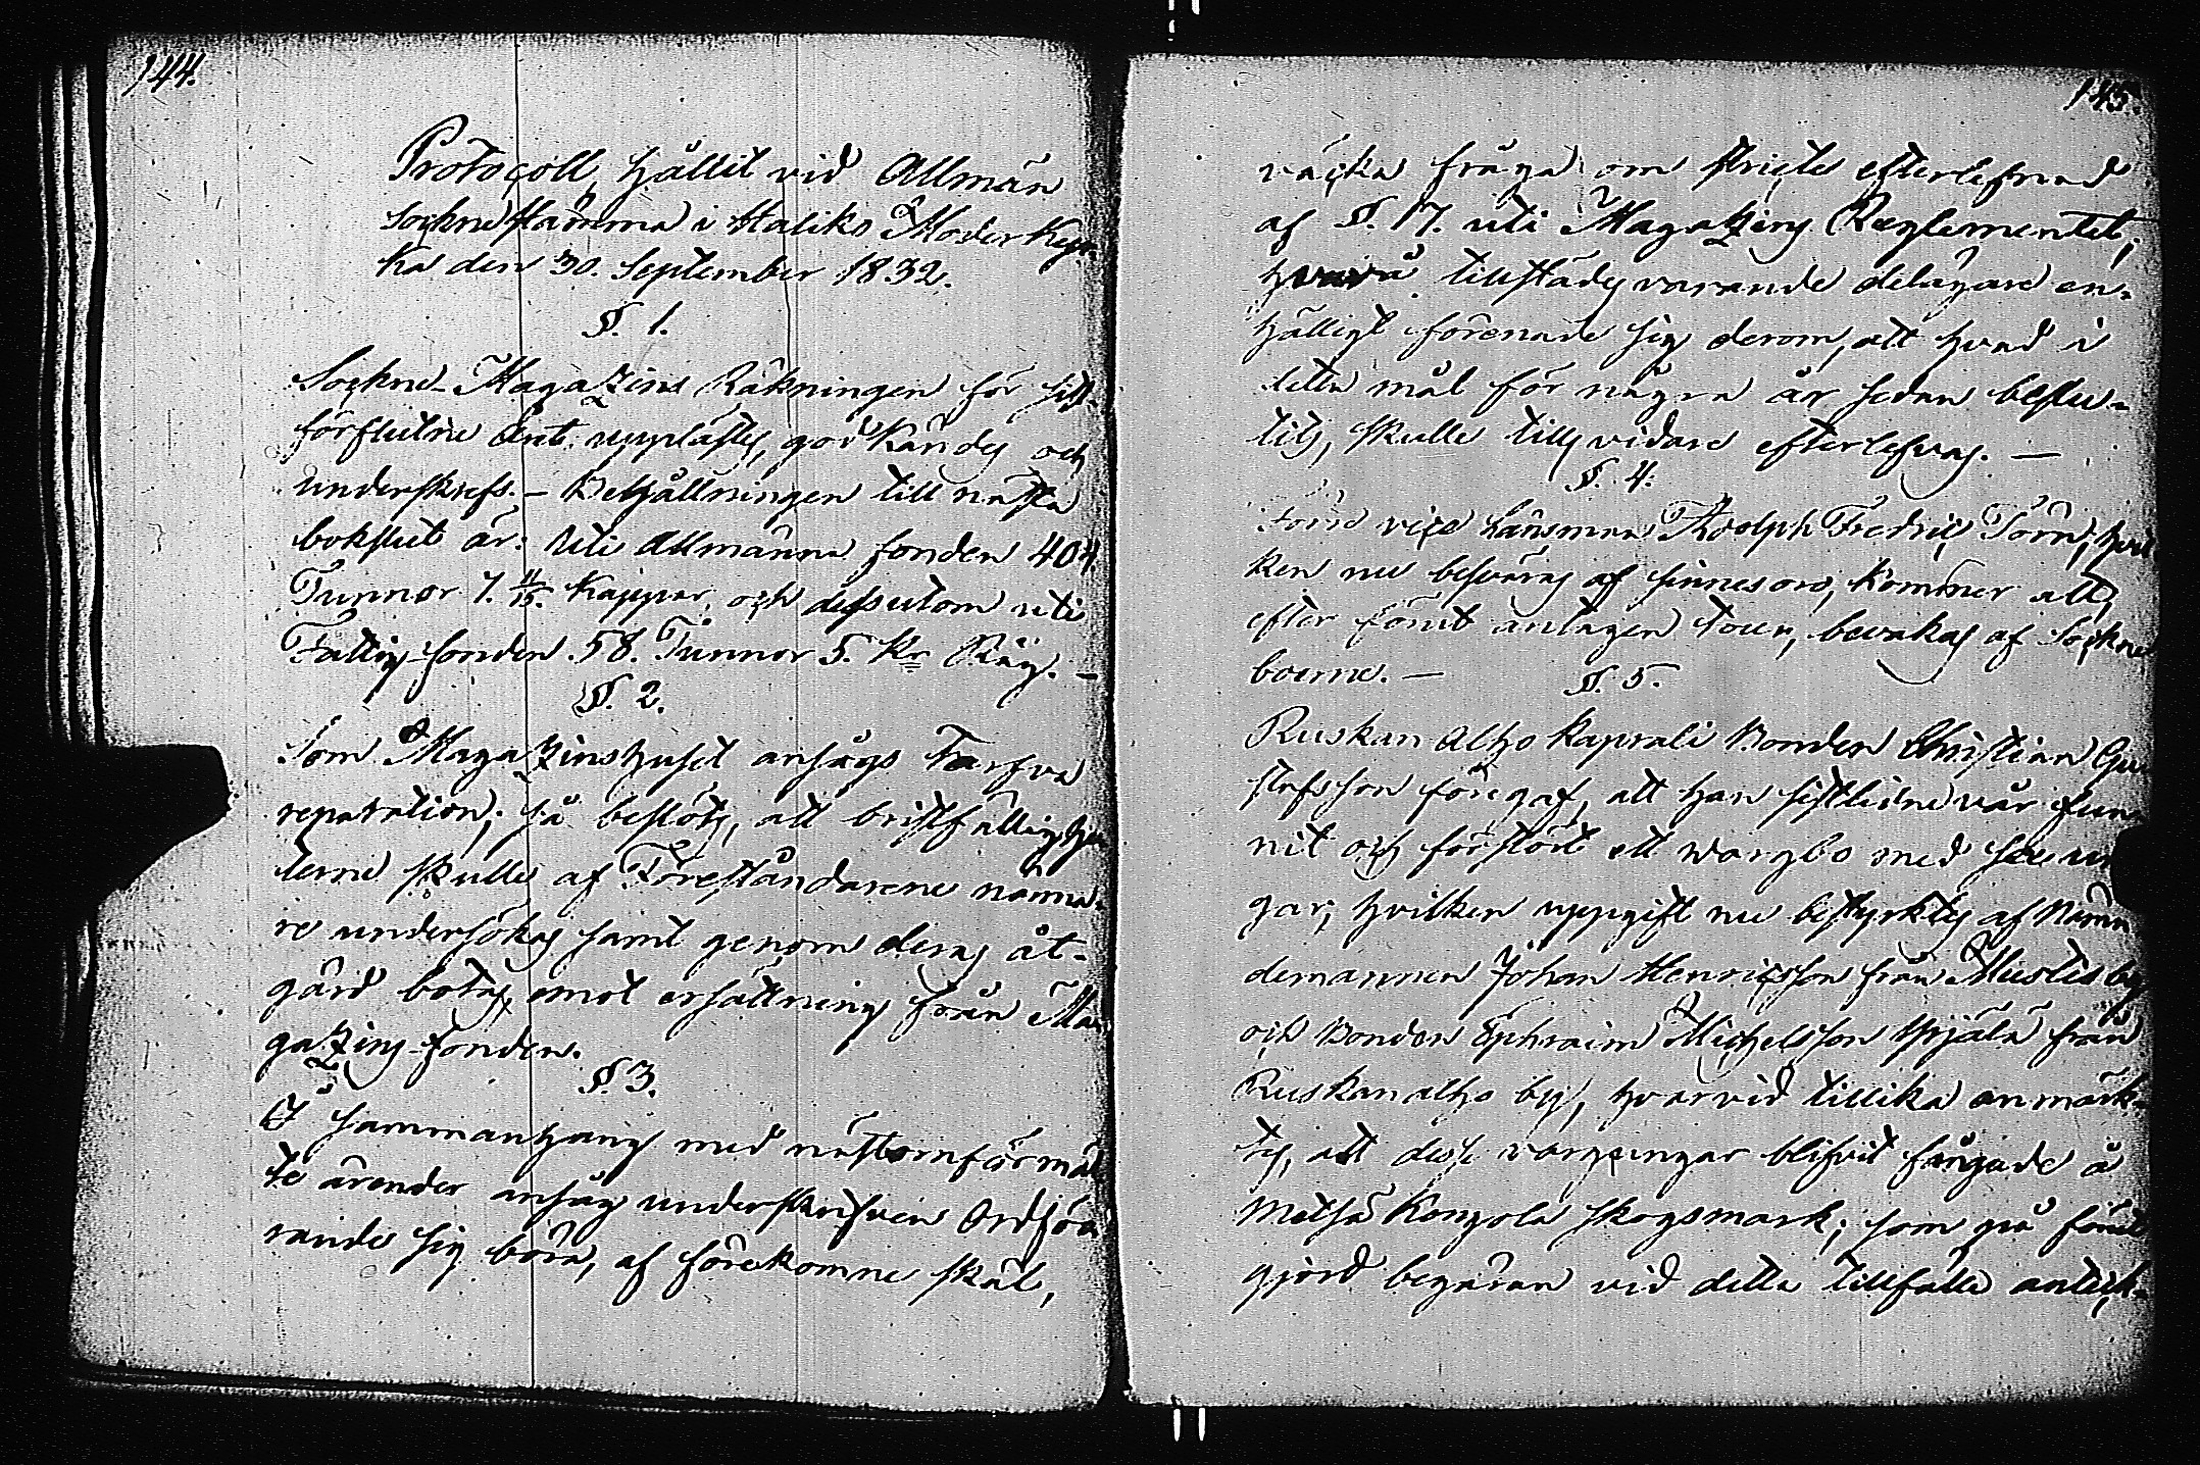 144.
Protocoll, hållit vid Allmän
Sockne Stämma i Haliko Moder Kyr-
ka den 30. September 1832.
§. 1.
Sockne-Magazins Räkningen för sist-
förflutne året upplästes, god Kändes och
underskrefs. - Behållningen till nästa
bokslut är: Uti Allmänna fonden 404.
Tunnor 7. 11/15. Kappar, och dessutom uti
Fattig-fonden .58. Tunnor 5. Kr Råg. -
§. 2.
Som Magazinshuset ansågs tarfva
reparation, så beslöts, att bristfällighe-
terne skulle af Föreståndarene närma-
re undersökas samt genom deras åt-
gärd botas, emot ersättning från Ma-
gazins-fonden.
§. 3.
I sammanhang med nästomförmäl-
te ärender ansåg underskrifven Ordfö-
rande sig böra, af förekomne skäl,
145.
väcka fråga om stricte efterlefnad
af §. 17. uti Magazins Reglementet;
tillstädesvarande delägare en-
hälligt förenade sig derom, att hvad i
detta mål för några år sedan beslu-
tits, skulle tills vidare efterlefvas. —
§. 4.
Förre vice Länsman Adolph Fredric Törn, hvil-
ken nu besväras af sinnesoro, kommer att,
efter förut antagen tour, bevakas af Sockne
boerne. —
§. 5.
Ruskan Alho Kaprali Bonden Christian Gu-
stafsson föregaf, att han sistledne vår fun-
nit och förstört ett wargbo med sex un-
gar, hvilken uppgift nu bestyrktes af Nämn-
demannen Johan Henricsson från Mustis by
och Bonden Ephraim Michelsson från
Ruskanalho by, hvarvid tillika anmärk-
tes, att desse vargungar blifvit fångade å
Metsä Kongola skogsmark; som på förut
gjord begäran vid detta tillfälle anteck-